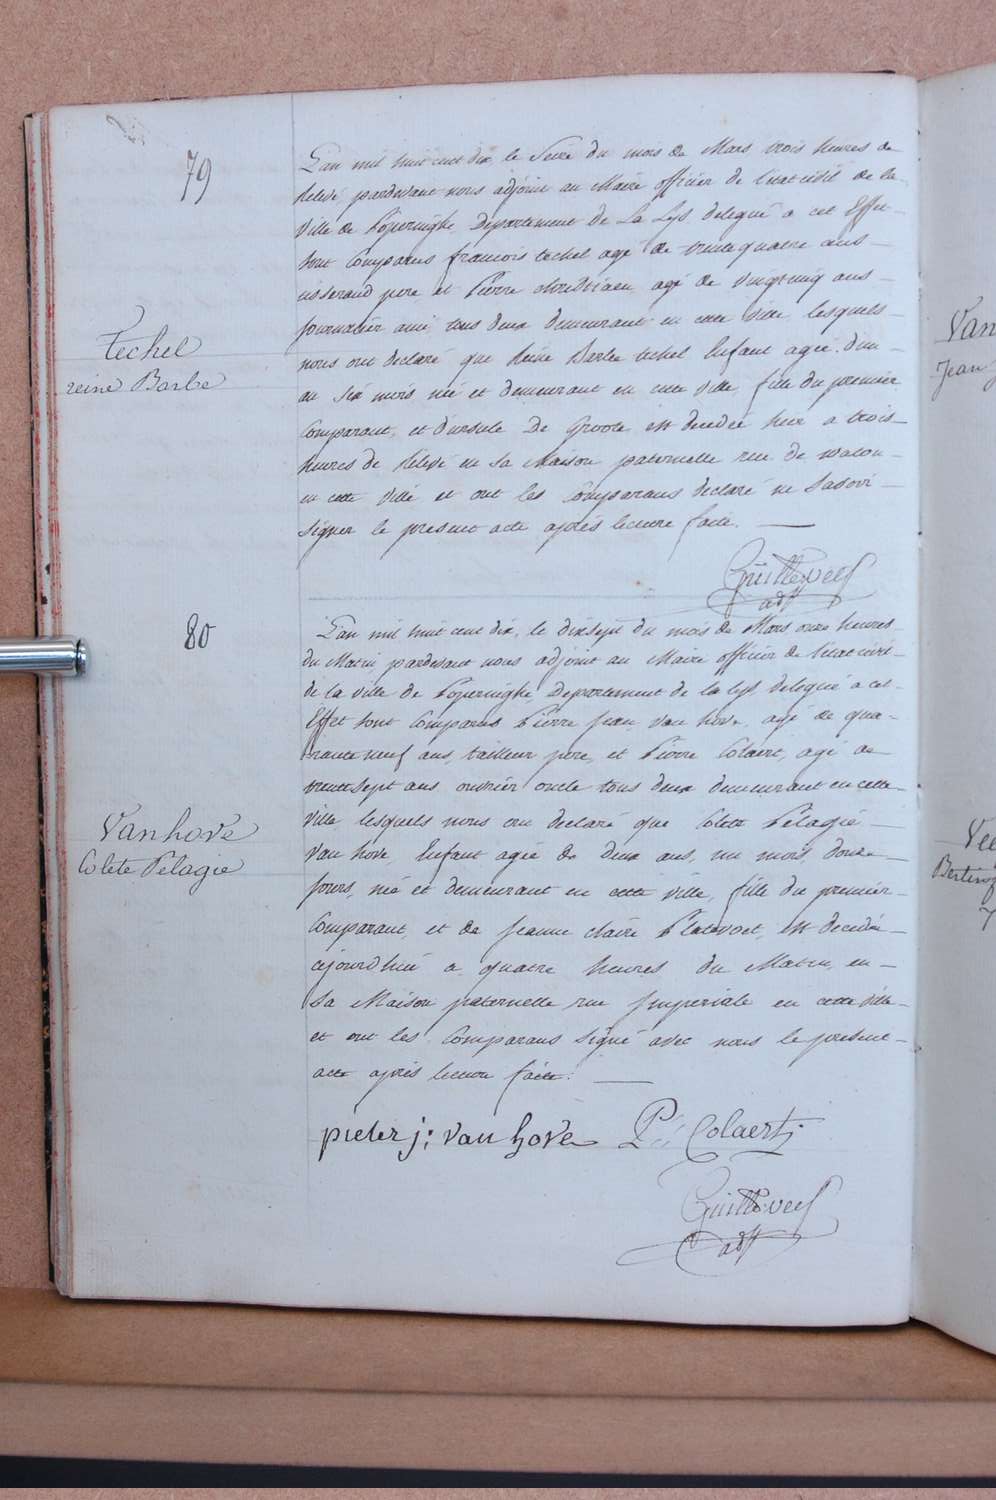 79
Techel
reine Barbe
L'an mil huit cent dix le Seize du mois de Mars trois heures de
Relevé pardevant nous adjoint au Maire officier de l'état civil de la
Ville de Poperinghe Departement de La Lys delegué a cet Effet
sont Comparus francois techel agé de trente quatre ans
tisserand pere et Pierre agé de vingt cinq ans
journalier ami tous deux demeurant en cette ville lesquels
nous ont declaré que Reine Barbe techel Enfant agée d'un
an Six mois née et demeurant en cette ville, fille du premier
Comparant, et d'ursule De Groote est decedée hier a trois
heures de Relevé en sa Maison paternelle rue de watou
en cette ville et ont les Comparans declaré ne Savoir
signer le present acte après lecture faite.
adjt
80
Vanhove
Colete Pelagie
L'an mil huit cent dix, le dixsept du mois de Mars onze heures
du Matin pardevant nous adjoint au Maire officier de l'état civil
de la ville de Poperinghe, Departement de la Lys delegué a cet
Effet sont Comparus Pierre Jean Van hove, agé de qua-
rante neuf ans, tailleur pere, et Pierre Colaert, agé de
trente sept ans ouvrier oncle tous deux demeurant en cette
ville lesquels nous ont declaré que Colete Pelagie
Van hove, Enfant agée de deux ans, un mois, douze
jours, née et demeurant en cette ville, fille du premier
Comparant, et de Jeanne Claire Platevoet, est decedée
cejourd'hui a quatre heures du Matin, en
sa Maison paternelle rue Imperiale en cette ville
et ont les Comparans signé avec nous le present
acte après lecture faite.
pieter j: van hove P:: Colaert
adjt
Van
Jean